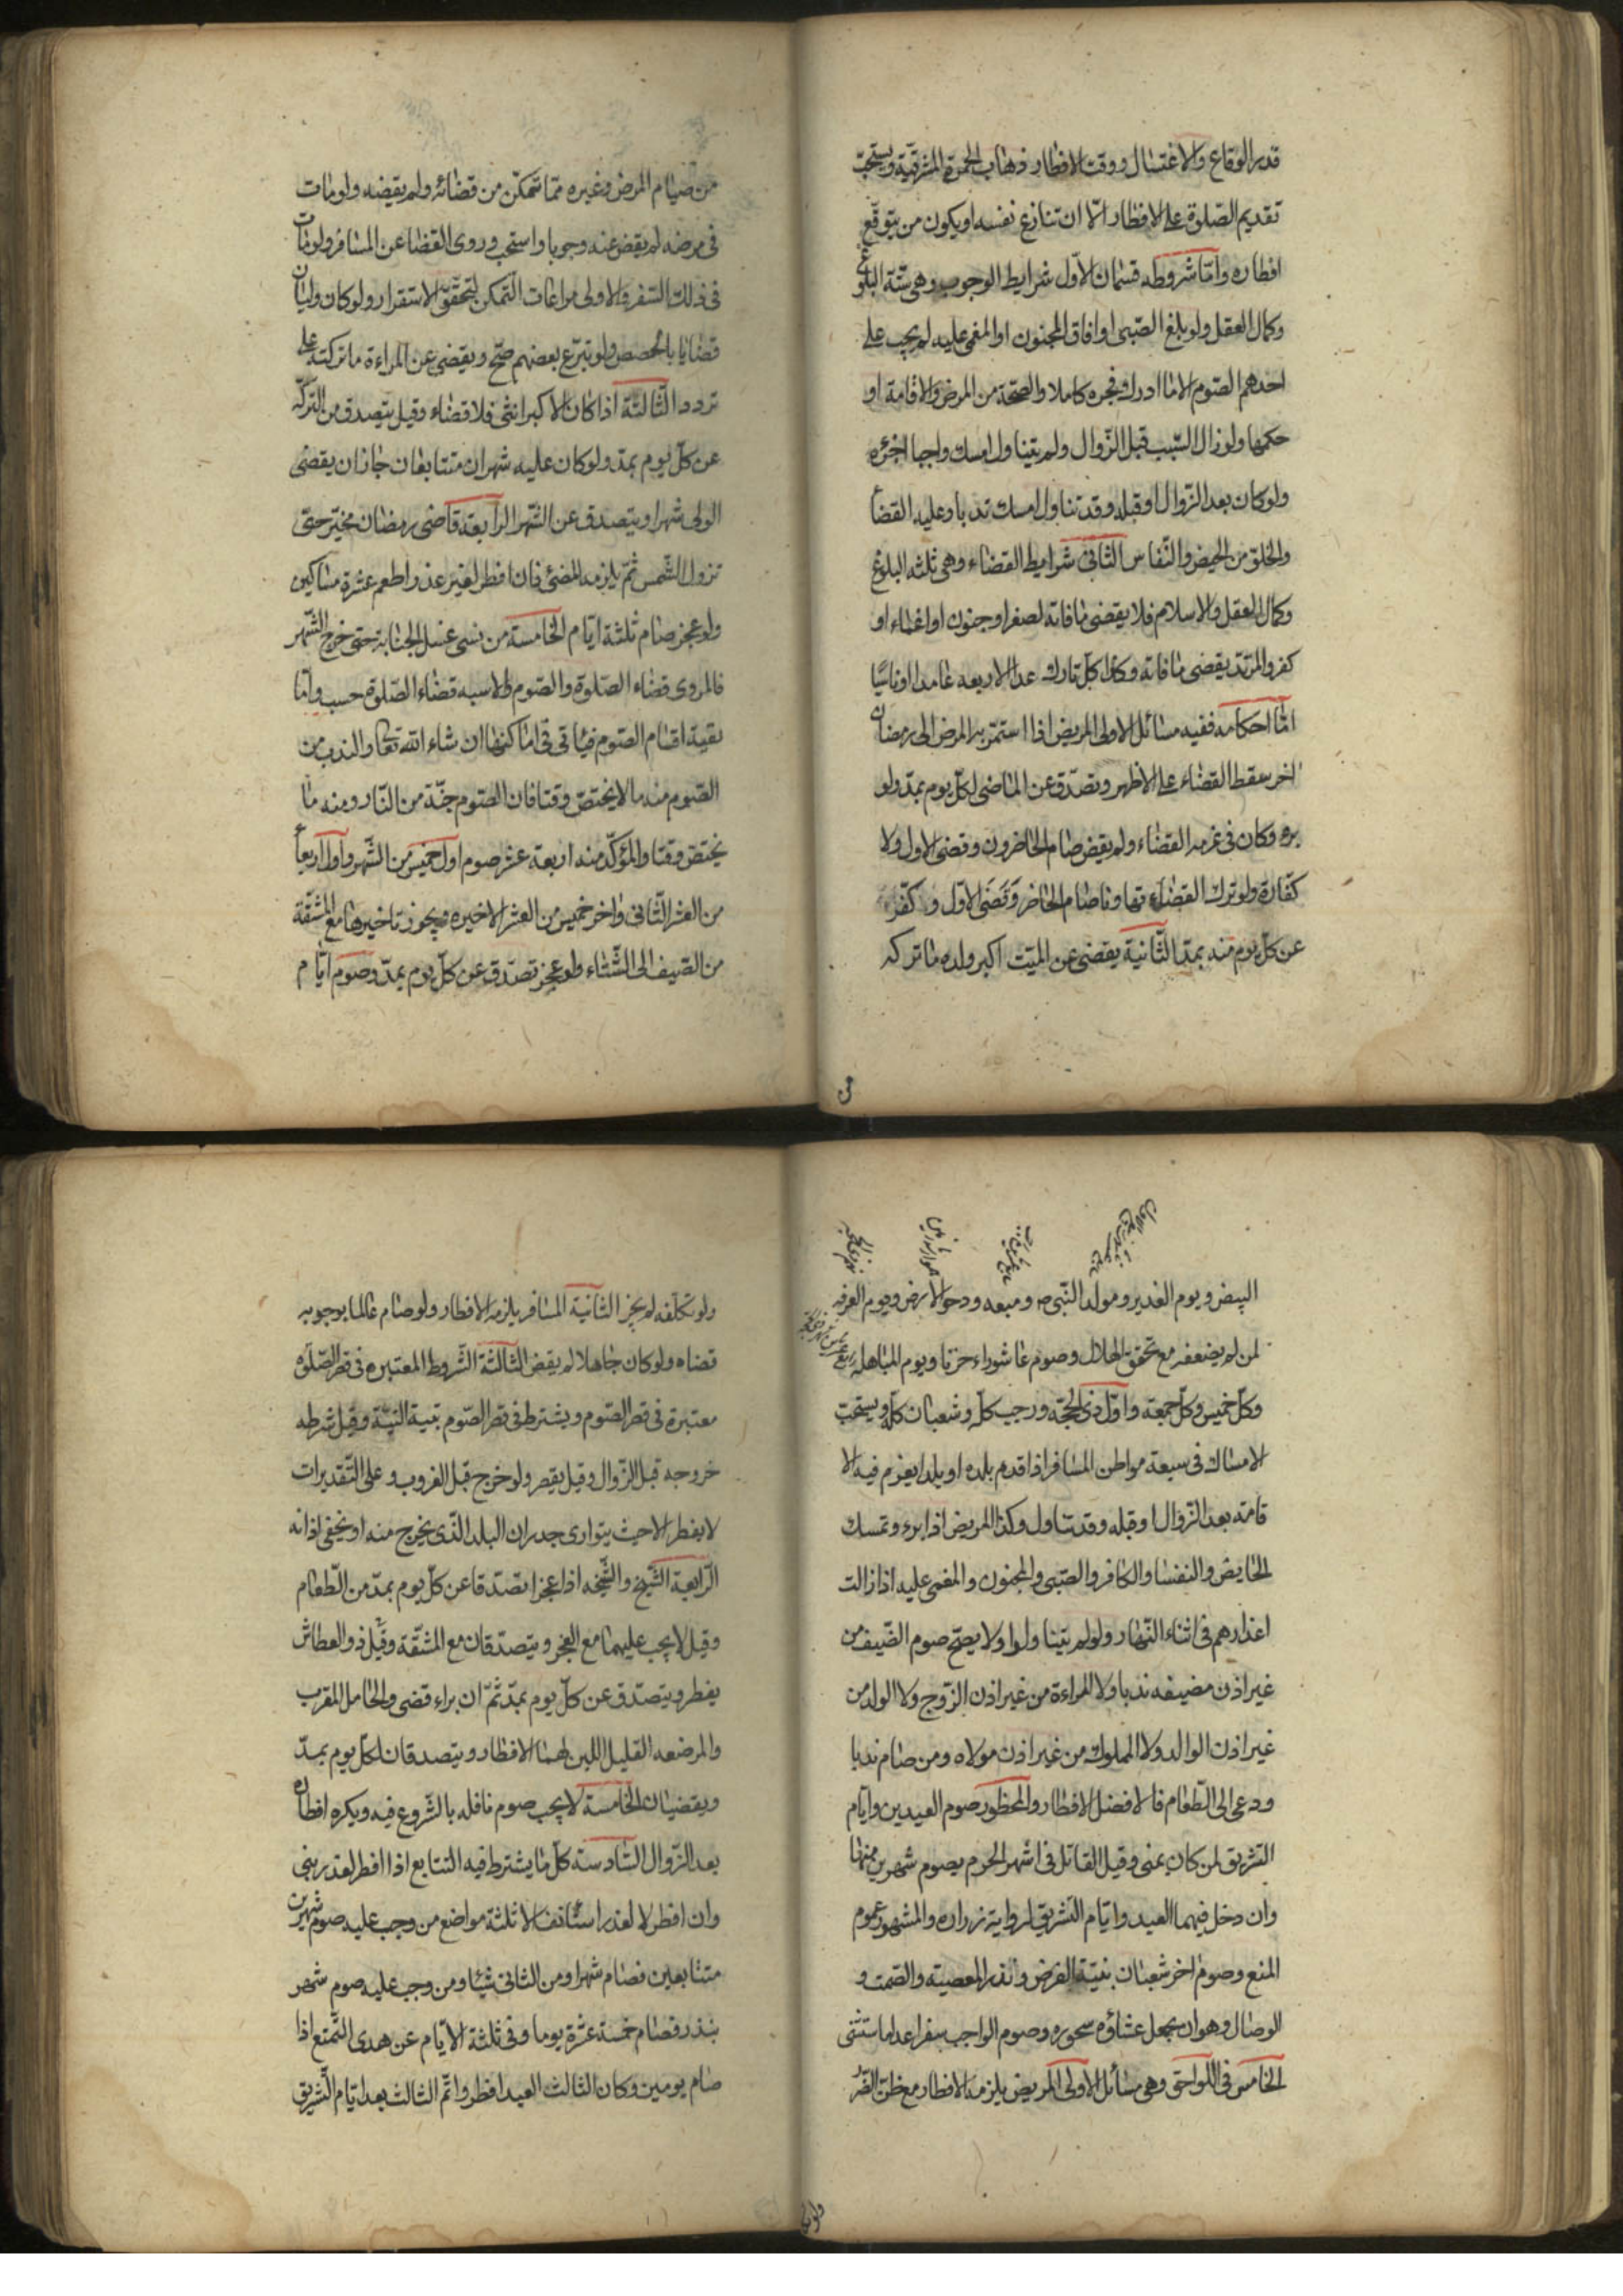 قدر الوقاع والاغتسال ووقت الافطار ذهاب الحمرة المشرقية ويستحب
تقديم الصلوة على الافطار الا ان تنازع نفسه او يكون من يتوقع
افطاره واما شروطه قسمان الاول شرايط الوجوب وهى ستة البلوغ
وكمال العقل ولو بلغ الصبى او افاق المجنون او المغمى عليه لم يجب على
احدهم الصوم الا ما ادرك فجره كاملا والصحة من المرض والاقامة او
حكمها ولو زال السبب قبل الزوال ولم يتناول امسك واجبا اجزءه
ولو كان بعد الزوال او قبله وقد تناول امسك ندبا وعليه القضأ
والخلو من الحيض والنفاس الثانى شرايط القضاء وهى ثلثه البلوغ
وكمال العقل والاسلام فلا يقضى ما فاته لصغر او جنون او اغماء او
كفر والمرتد يقضى ما فاته وكذا كل تارك عدا الاربعه عامدا او ناسيا
اما احكامه ففيه مسائل الاولى المريض اذا استمر به المرض الى رمضان
اخر سقط القضاء على الاظهر وتصدق عن الماضى لكل يوم بمد ولو
برء وكان فى عزمه القضاء ولم يقض صام الحاضر وقضى الاول ولا
كفارة ولو ترك القضاء تهاونا صام الحاضر وقضى الاول و كفر
عن كل يوم منه بمد الثانية يقضى عن الميت اكبر ولده ما تركه
من
من صيام المرض وغيره مما تمكن من قضائه ولم يقضه ولو مات
فى مرضه لم يقض عنه وجوبا واستحب وروى القضا عن المسافر ولو مات
فى ذلك السفر والاولى مراعات التمكن لتحقق الاستقرار ولو كان وليان
قضايا بالحصص ولو تبرع بعضهم صح ويقضى عن المراءة ما تركته على
تردد الثالثة اذا كان الاكبر انثى فلا قضاء وقيل يتصدق من التركه
عن كل يوم بمد ولو كان عليه شهران متتابعان جاز ان يقضى
الولى شهرا ويتصدق عن الشهر الرابعة قاضى رمضان مخير حتى
تزول الشمس ثم يلزمه المضئ فان افطر لغير عذر اطعم عشرة مساكين
ولو عجز صام ثلثة ايام الخامسة من نسى غسل الجنابة حتى خرج الشهر
فالمروى قضاء الصلوة والصوم والاسبه قضاء الصلوة حسب واما
بقية اقسام الصوم فياتى فى اماكنها ان شاء الله تعا والندب من
الصوم منه ما لا يختص وقتا فان الصوم جنة من النار ومنه ما
يختص وقتا والمؤكد منه اربعة عشر صوم اول خميس من الشهر واول اربعأ
من العشر الثانى واخر خميس من العشر الاخيره ويجوز تاخيرها مع المشقة
من الصيف الى الشتاء ولو عجز تصدق عن كل يوم بمد وصوم ايام
البيض ويوم الغدير ومولد النبى ص ومبعه ودحو الارض ويوم العرفه
لمن لم يضعفه مع تحقق الهلال وصوم عاشوراء حزنا ويوم المباهله
وكل خميس وكل جمعة واول ذى الحجة ورجب كله وشعبان كله ويستحب
الامساك فى سبعة مواطن المسافر اذا قدم بلده او بلدا يعزم فيه الا
قامة بعد الزوال او قبله وقد تناول وكذا المريض اذا برء وتمسك
الحايض والنفسا والكافر والصبى والمجنون والمغمى عليه اذا زالت
اعذارهم فى اثناء النهار ولو لم يتناولوا ولا يصح صوم الضيف من
غير اذن مضيفه ندبا ولا المراءة من غير اذن الزوج ولا الولد من
غير اذن الوالد ولا المملوك من غير اذن مولاه ومن صام ندبا
ودعى الى الطعام فالافضل الافطار والمحظور صوم العيدين وايام
التشريق لمن كان بمنى وقيل القاتل فى اشهر الحرم يصوم شهرين منها
وان دخل فيهما العيد وايام التشريق لرواية زراره والمشهور عموم
المنع وصوم اخر شعبان بنية الفرض ونذر المعصيته والصمت و
الوصال وهو ان يجعل عشاؤه سحوره وصوم الواجب سفرا عدا ما ستثنى
الخامس فى اللواحق وهى مسائل الاولى المريض يلزمه الافطار مع ظن الضرر
ولو تكلفه
ولو تكلفه لم يجز الثانية المسافر يلزمه الافطار ولو صام عالما بوجوبه
قضاه ولو كان جاهلا لم يقض الثالثة الشروط المعتبره فى قصر الصلوه
معتبرة فى قصر الصوم ويشترط فى قصر الصوم تبية النية وقيل شرطه
خروجه قبل الزوال وقيل يقصر ولو خرج قبل الغروب وعلى التقديرات
لا يفطر الا حيث يتوارى جدران البلد الذى يخرج منه او يخفى اذانه
الرابعة الشيخ والشيخه اذا عجزا تصدقا عن كل يوم بمد من الطعام
وقيل لا يجب عليهما مع العجز ويتصدقان مع المشقة وقيل ذو العطاش
يفطر ويتصدق عن كل يوم بمد ثم ان براء قضى والحامل المقرب
والمرضعه القليل اللبن لهما الافطار ويتصدقان لكل يوم بمد
ويقضيان الخامسة لا يجب صوم نافله بالشروع فيه ويكره افطاره
بعد الزوال السادسة كل ما يشترط فيه التتابع اذا افطر لعذر بنى
وان افطر لا لعذر استأنف الا ثلثة مواضع من وجب عليه صوم شهرين
متتابعين فصام شهرا ومن الثانى شيئا ومن وجب عليه صوم شهر
بنذر فصام خمسة عشرة يوما وفى ثلثة الايام عن هدى التمتع اذا
صام يومين وكان الثالث العيد افطر واتم الثالث بعد ايام التشريق